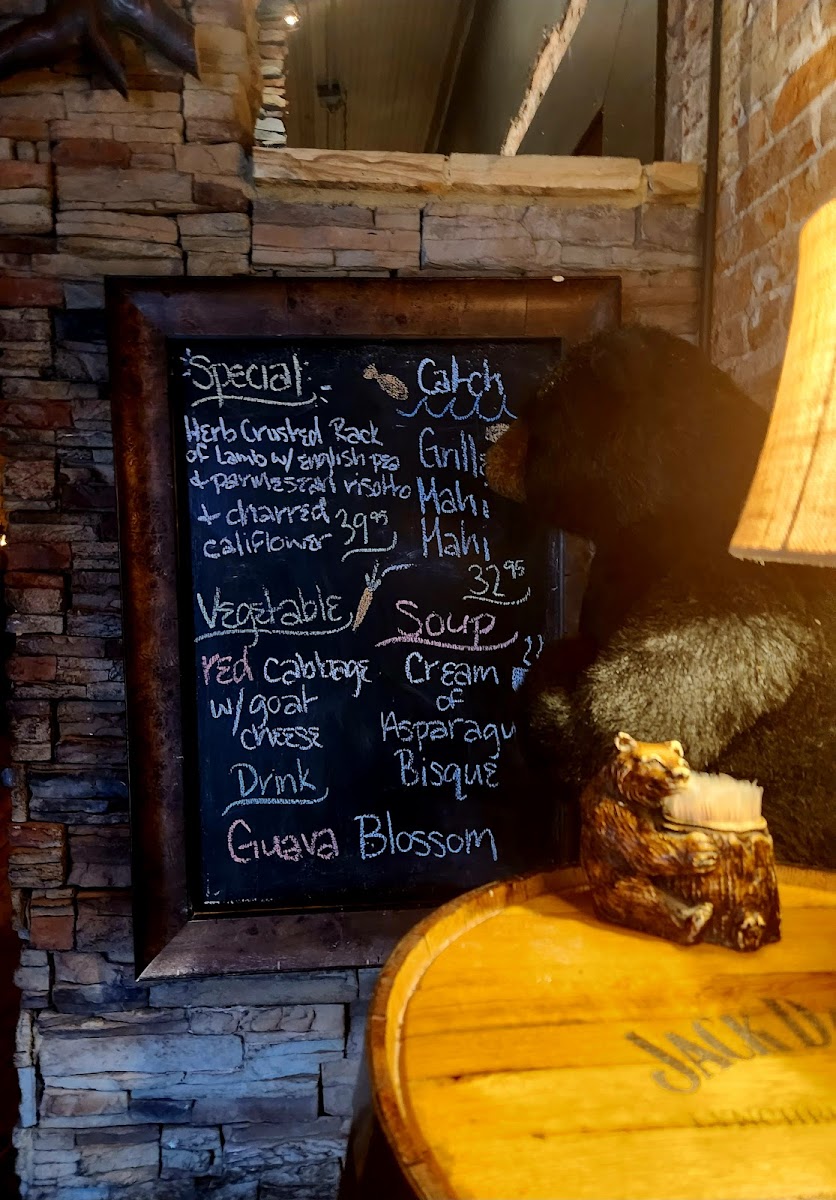 Special
Herb Crusted Rack
of Lamb w/ english pea
+ parmesean risotto
+ charred 39⁹⁵
califlower
Catch
Grille
Mahi
Mahi
32⁹⁵
Vegetable
red cabbage
w/goat
cheese
Soup
Cream
of
Asparagu
Bisque
Drink
Guava Blossom
JACK D
LYNCHB